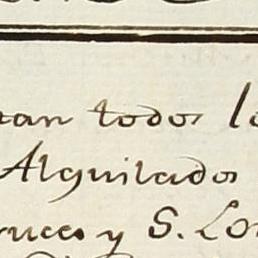 ran todos l
Alquilados
ruces y S. Lo